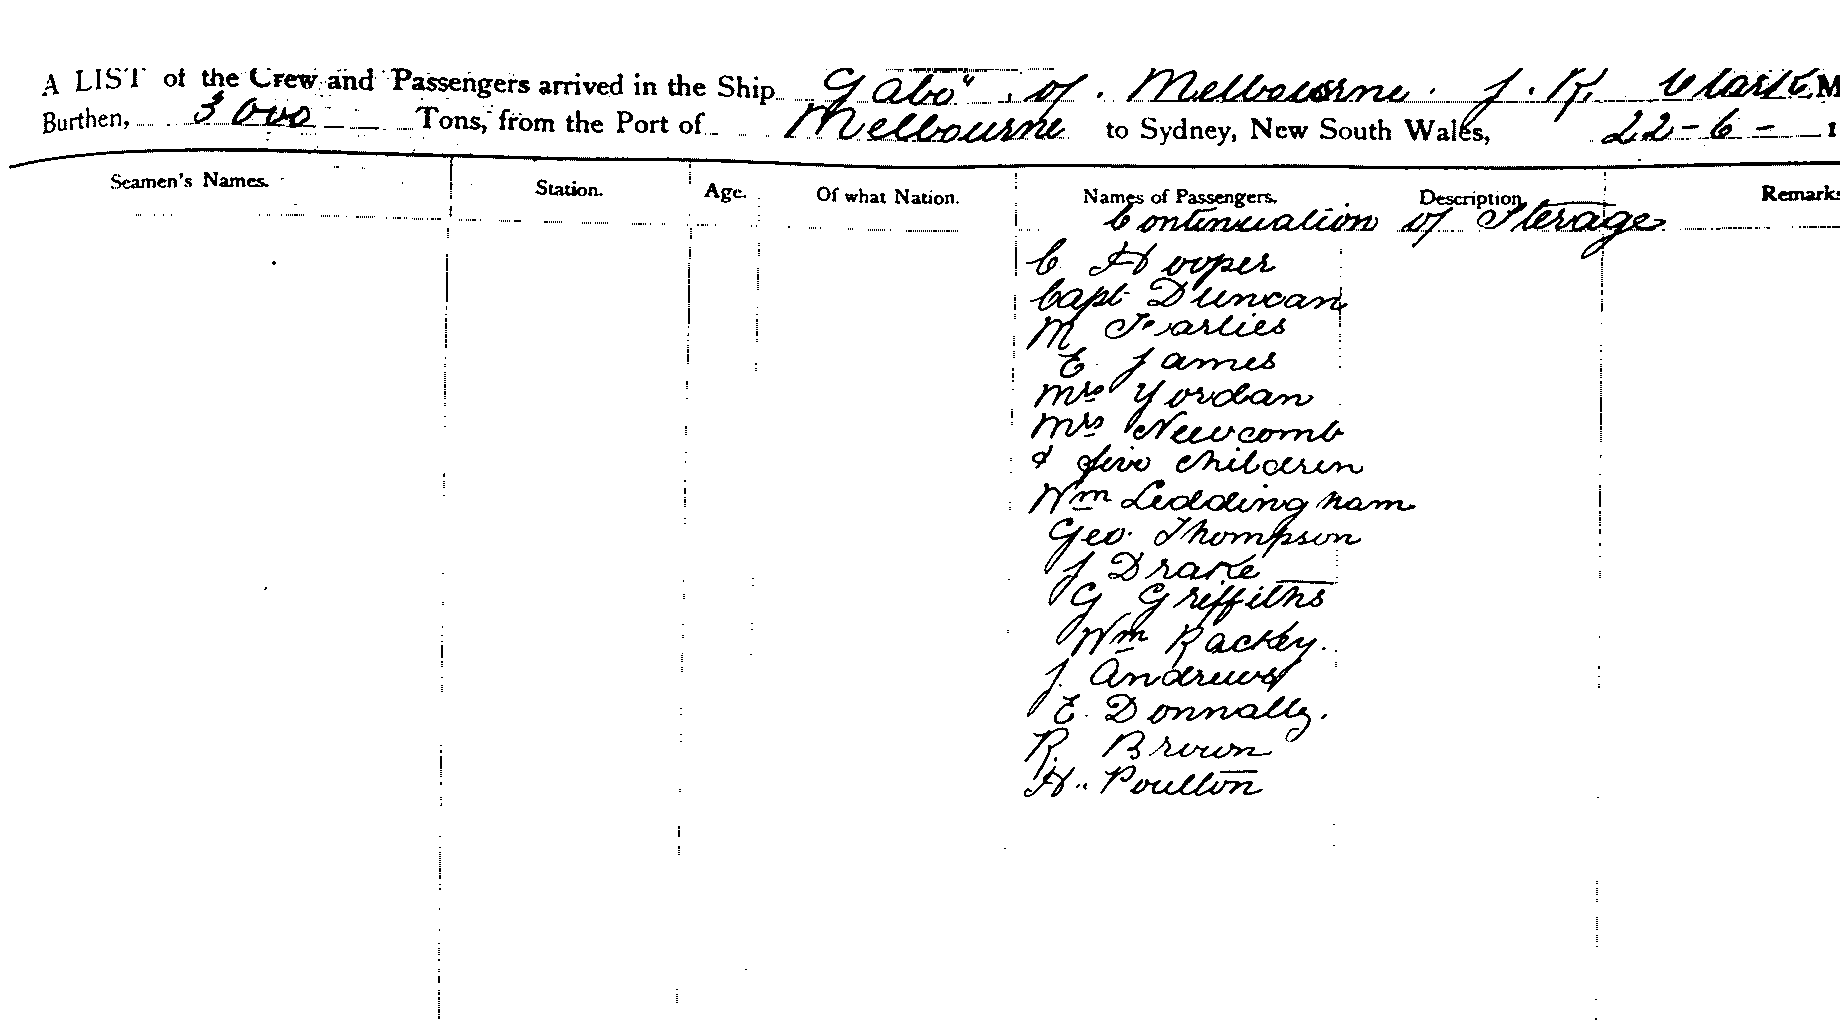 A LIST of the Crew and Passengers arrived in the Ship Gabo" of Melbourne. J. K. Clark, M
Burthen, 3000 Tons, from the Port of Melbourne to Sydney, New South Wales, 22-6- 1
Seamen's Names. Station. Age. Of what Nation. Names of Passengers. Description Remarks
Continuation of Sterage
C Hooper
Capt Duncan
M
E James
Mrs Yordan
Mrs Newcomb
& five children
Wm Leddingham
Geo. Thompson
J Drake
G Griffiths
Wm Rackey.
J. Andrews
E. Donnally.
R. Brown
H.. Poulton